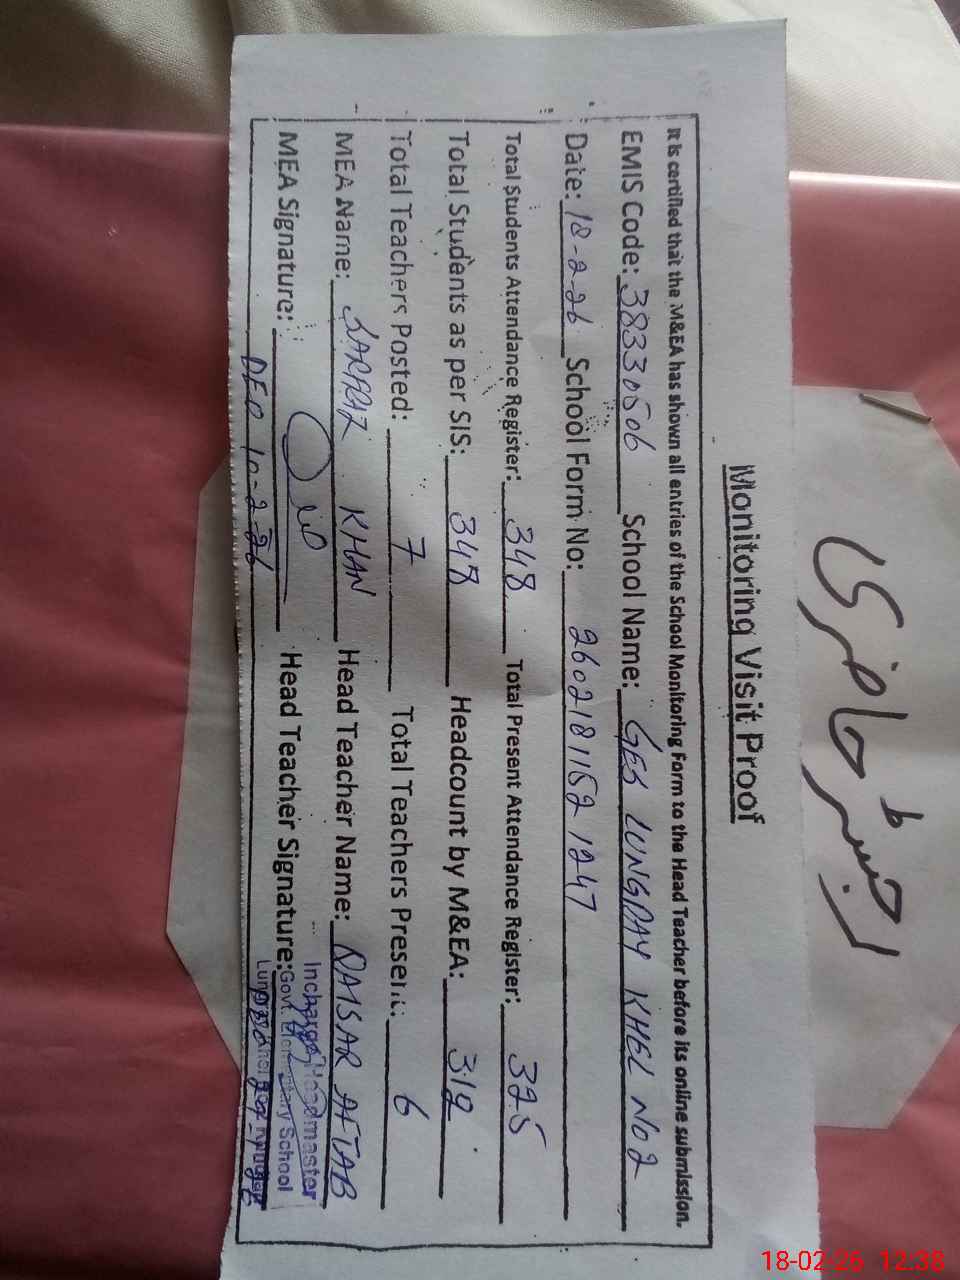 رجسٹر حاضری
Monitoring Visit Proof
It is certified that the M&EA has shown all entries of the School Monitoring Form to the Head Teacher before its online submission.
EMIS Code: 38330506 School Name: GES LUNGDAY KHEL NO 2
Date: 18-2-26 School Form No: 26021811521247
Total Students Attendance Register: 348 Total Present Attendance Register: 325
Total Students as per SIS: 348 Headcount by M&EA: 312
Total Teachers Posted: 7 Total Teachers Present: 6
MEA Name: SARFRAZ KHAN Head Teacher Name: QAISAR AFTAB
MEA Signature: Head Teacher Signature:
Incharge Headmaster
Govt Elementary School
DEO 10-2-26
18-02-26 12:38